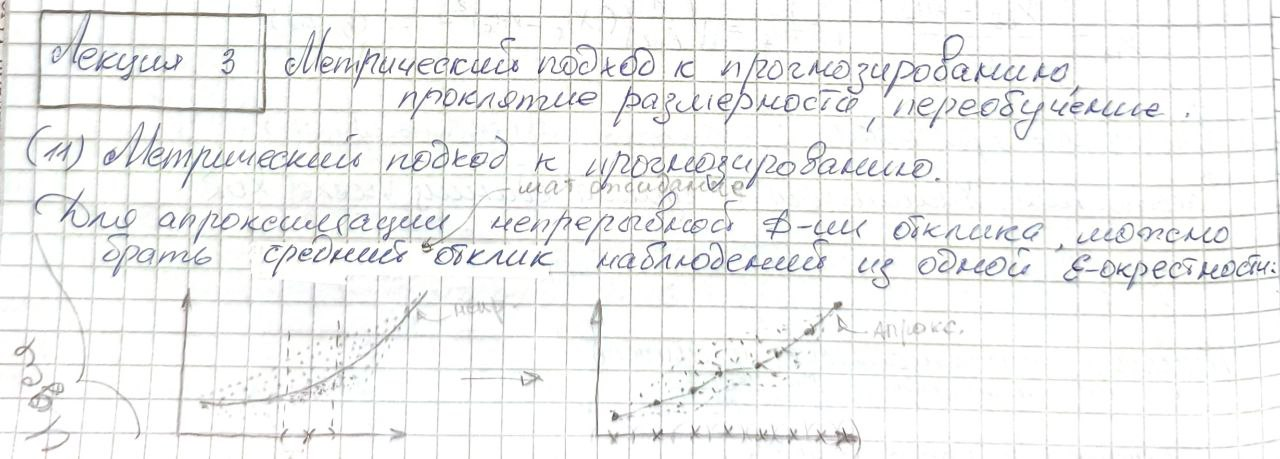 Лекция 3 Метрический подход к прогнозированию,
проклятие размерности, переобучение.
(11) Метрический подход к прогнозированию.
мат ожидание
Для апроксимации непрерывной ф-ии отклика, можно
брать средний отклик наблюдений из одной ε-окрестности:
непр.
апрокс.